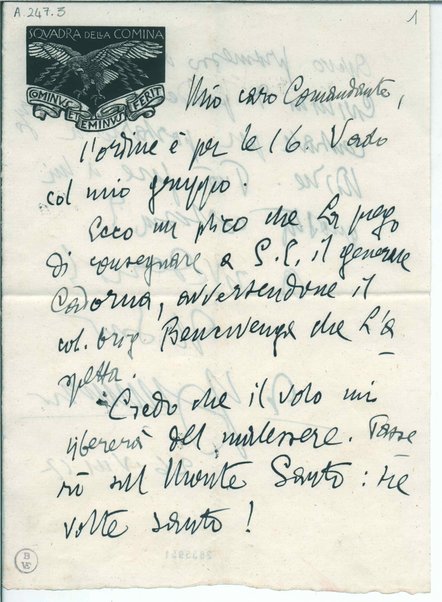 A.247.3
1
SQVADRA DELLA COMINA
COMINVS ET EMINVS FERIT
Mio caro Comandante,
l'ordine è per le 16. Vado
col mio gruppo.
Ecco un plico che La prego
di consegnare a S.E. il generale
Cadorna, avvertendone il
col. brig. Bencivenga che l'a
spetta.
Credo che il volo mi
libererà del malessere. Passe
rò sul Monte Santo: tre
volte santo!